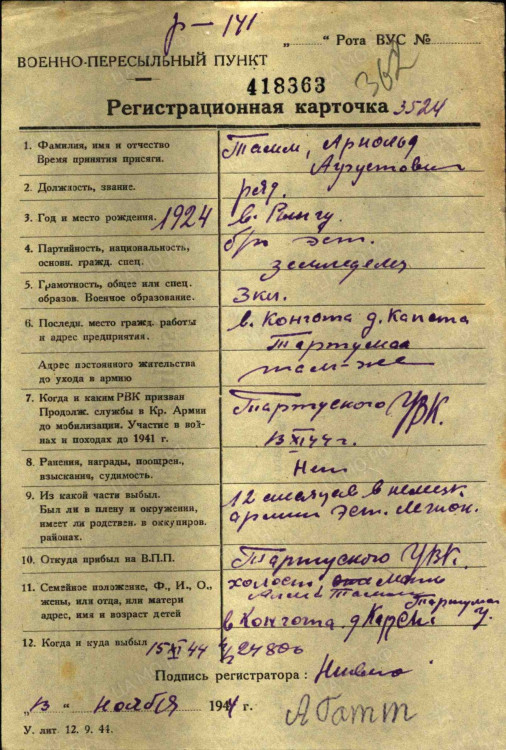 р-141
„ “ Рота ВУС №
ВОЕННО-ПЕРЕСЫЛЬНЫЙ ПУНКТ
362
418363
Регистрационная карточка 3524
1. Фамилия, имя и отчество
Время принятия присяги.
Тамм, Арнольд
Аугустович
2. Должность, звание.
ряд.
3. Год и место рождения. 1924
в. Рынгу.
4. Партийность, национальность,
основн. гражд. спец.
б/п эст.
земледелец
5. Грамотность, общее или спец.
образов. Военное образование.
3кл.
6. Последн. место гражд. работы
и адрес предприятия.
в. Конгота д.
Тартумаа
Адрес постоянного жительства
до ухода в армию
там-же
7. Когда и каким РВК призван
Продолж. службы в Кр. Армии
до мобилизации. Участие в вой-
нах и походах до 1941 г.
Тартуского УВК.
13 XI 44 г.
8. Ранения, награды, поощрен.,
взыскания, судимость.
Нет
9. Из какой части выбыл.
Был ли в плену и окружении,
имеет ли родствен. в оккупиров.
районах.
12 месяцев в немецк.
армии Эст. легион.
10. Откуда прибыл на В.П.П.
Тартуского УВК.
11. Семейное положение, Ф., И., О.,
жены, или отца, или матери
адрес, имя и возраст детей
холост мать
Тамм Тартумаа
в Конгота д. у.
12. Когда и куда выбыл 15 XI 44
24800
Подпись регистратора:
„13“ ноября 1944 г.
У. лит. 12. 9. 44.